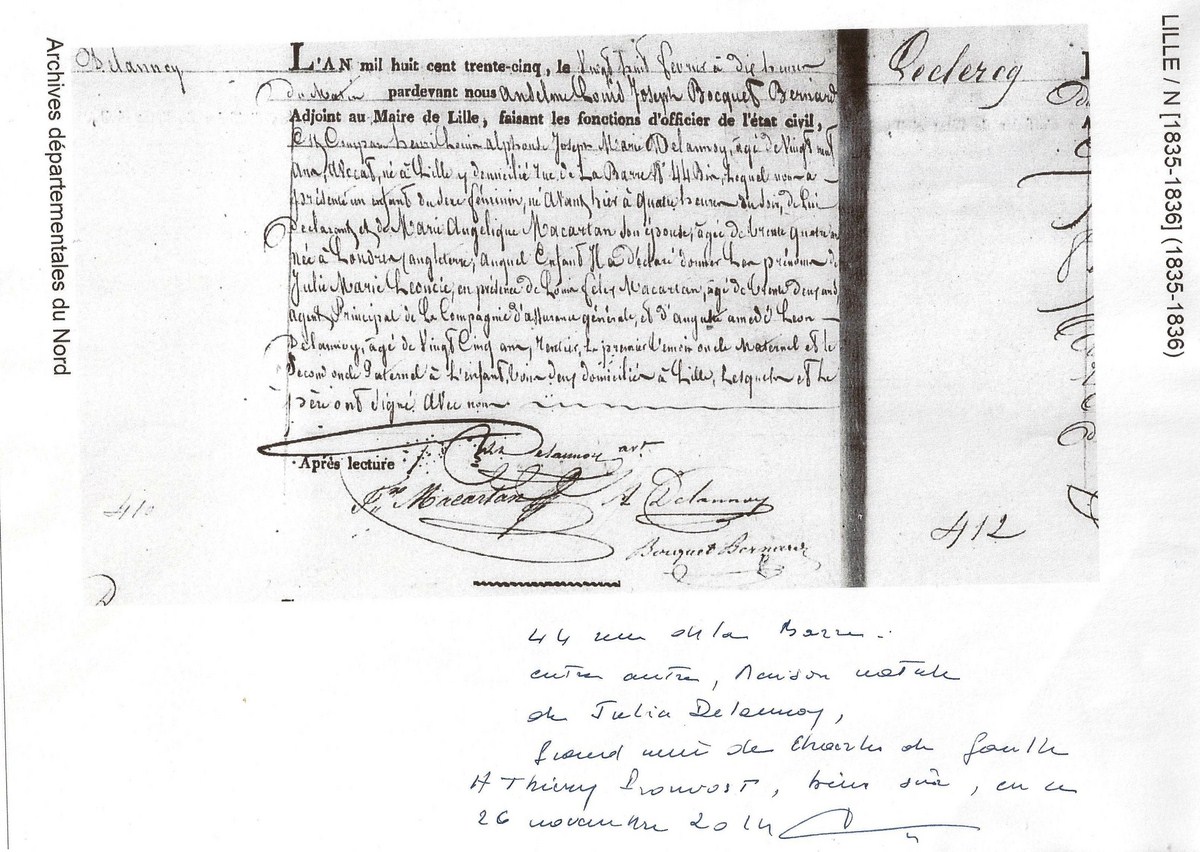 Archives départementales du Nord
LILLE / N [1835-1836] (1835-1836)
Delannoy
L'AN mil huit cent trente-cinq, le Vingt huit fevrier à dix heures
du Matin pardevant nous Anselme Louis Joseph Bocquet Bernard
Adjoint au Maire de Lille, faisant les fonctions d'officier de l'état civil,
Est Comparu henri Louis alphonse Joseph Marie Delannoy, âgé de Vingt neuf
Ans, Avocat, né à Lille y domicilié rue de La Barre N° 44 Bis, Lequel nous a
présenté un enfant du sexe féminin, né Avant hier à quatre heures du soir, de Lui
Déclarant et de Marie Angelique Macartan son épouse, agée de trente quatre ans
née à Londres (angleterre, auquel Enfant Il a déclaré donner Les prénoms de
Julie Marie Leoncie, en présence de Louis Felix Macartan, âgé de trente deux ans
agent Principal de La Compagnie d'assurance générale, et d'auguste amedé Leon
Delannoy, agé de Vingt Cinq ans, rentier, Le premier Témoin oncle Maternel et le
Second oncle Paternel à L'enfant, tous deux domiciliés à Lille, Lesquels et Le
père ont signé Avec nous
Après lecture
Delannoy avt
Macartan
A Delannoy
Bocquet Bernard
410
D
Leclercq
412
44 rue de la Barre.
entre autre, Maison natale
de Julia Delannoy,
Grand mère de Charles de Gaulle
A Thierry Prouvost, bien sûr, en ce
26 novembre 2014